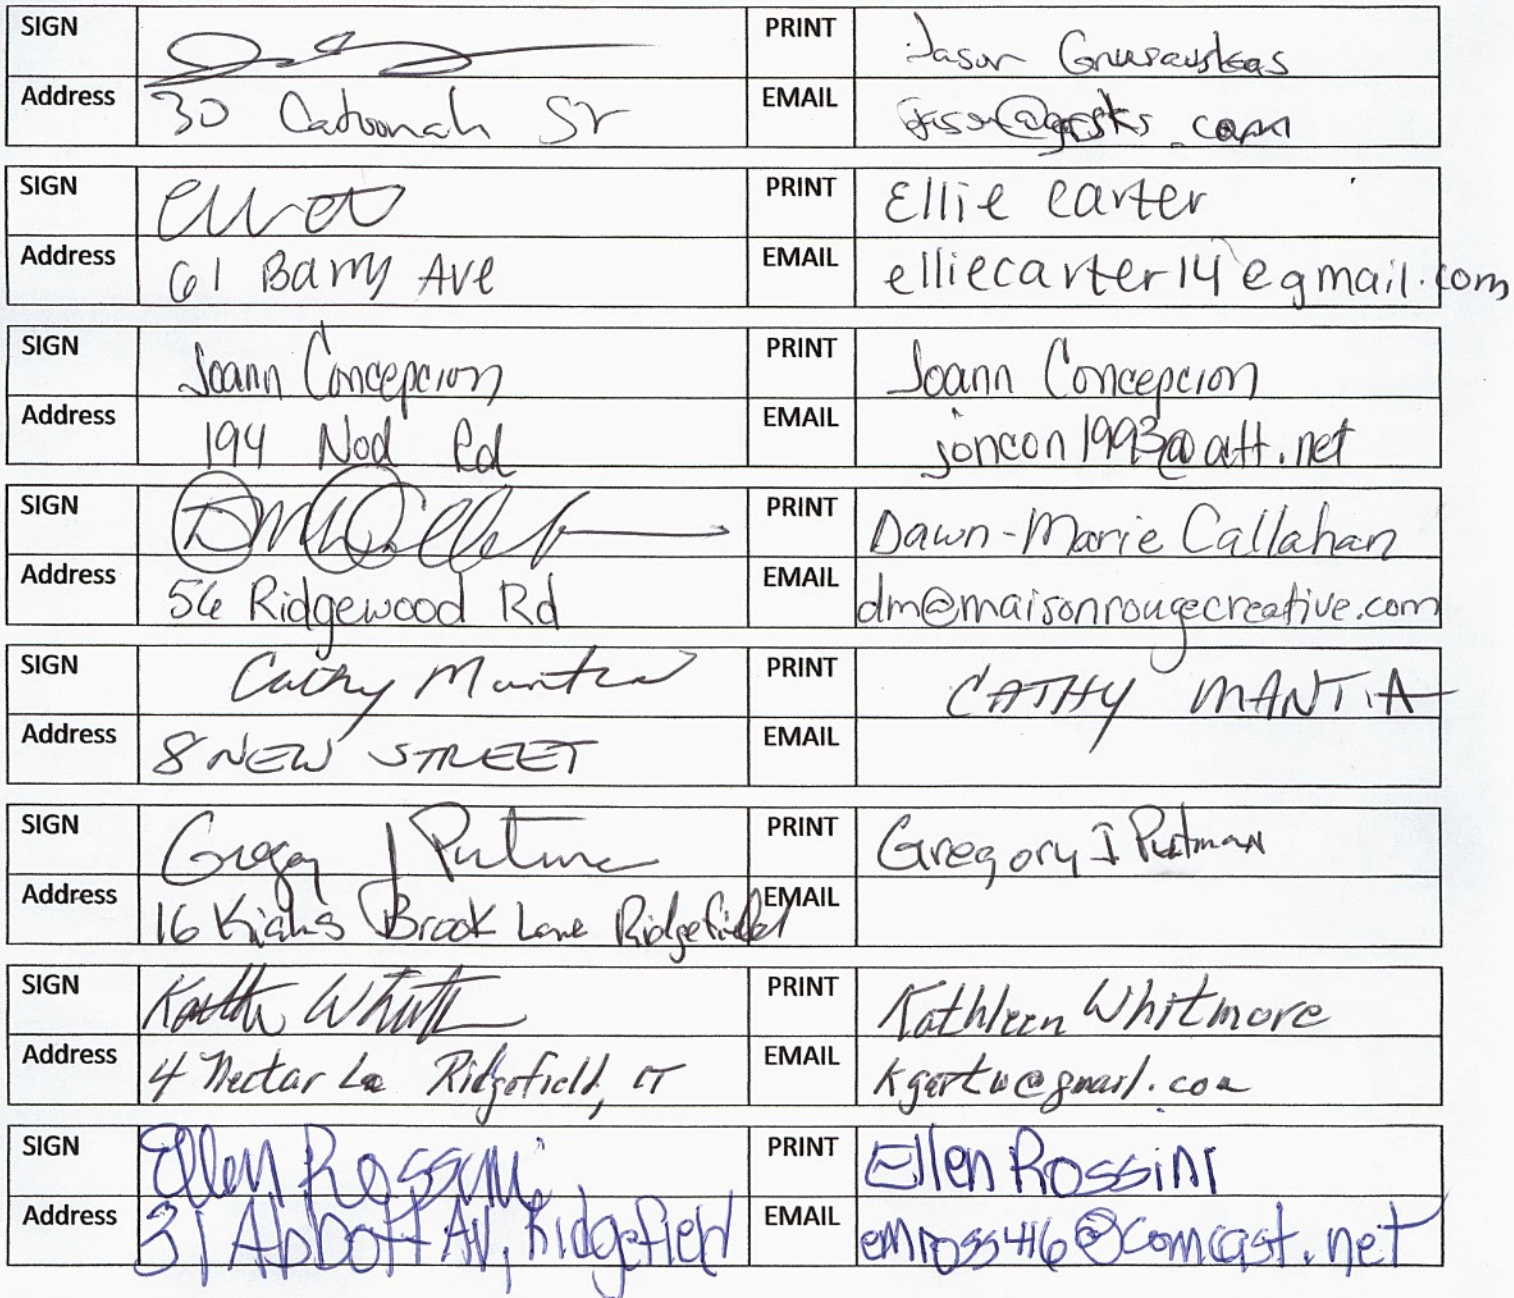 SIGN PRINT Jason
Address 30 Catoonah St EMAIL
SIGN PRINT Ellie Carter
Address 61 Barry Ave EMAIL elliecarter14@gmail.com
SIGN Joann Concepcion PRINT Joann Concepcion
Address 194 Nod Rd EMAIL joncon1993@att.net
SIGN PRINT Dawn-Marie Callahan
Address 56 Ridgewood Rd EMAIL dm@maisonrougecreative.com
SIGN Cathy Mantia PRINT CATHY MANTIA
Address 8 NEW STREET EMAIL
SIGN Gregory J Putman PRINT Gregory J Putman
Address 16 Kiahs Brook Lane Ridgefield EMAIL
SIGN PRINT Kathleen Whitmore
Address 4 Nectar Ln Ridgefield, CT EMAIL
SIGN Ellen Rossini PRINT Ellen Rossini
Address 31 Abbott Av, Ridgefield EMAIL emross416@comcast.net